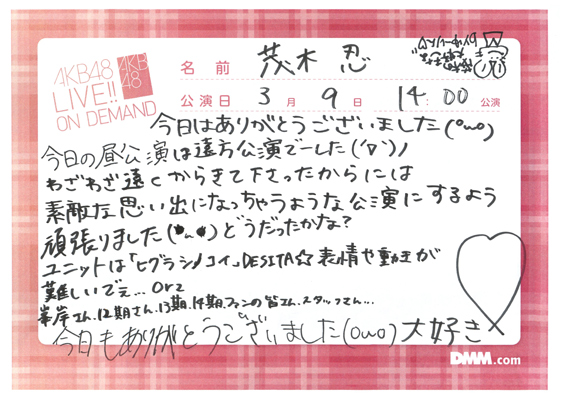 AKB48
LIVE!!
ON DEMAND
AKB
48
名前 茂木 忍
公演日 3月 9日 14:00 公演
今日はありがとうございました(°ω°)
今日の昼公演は遠方公演でーした('▽')ノ
わざわざ遠くからきて下さったからには
素敵な思い出になっちゃうような公演にするよう
頑張りました(•ω•)どうだったかな?
ユニットは「ヒグラシノコイ」DESITA☆表情や動きが
難しいでぇ…orz
峯岸さん、12期さん、13期、14期、ファンの皆さん、スタッフさん…
今日もありがとうございました(°ω°)大好き
DMM.com